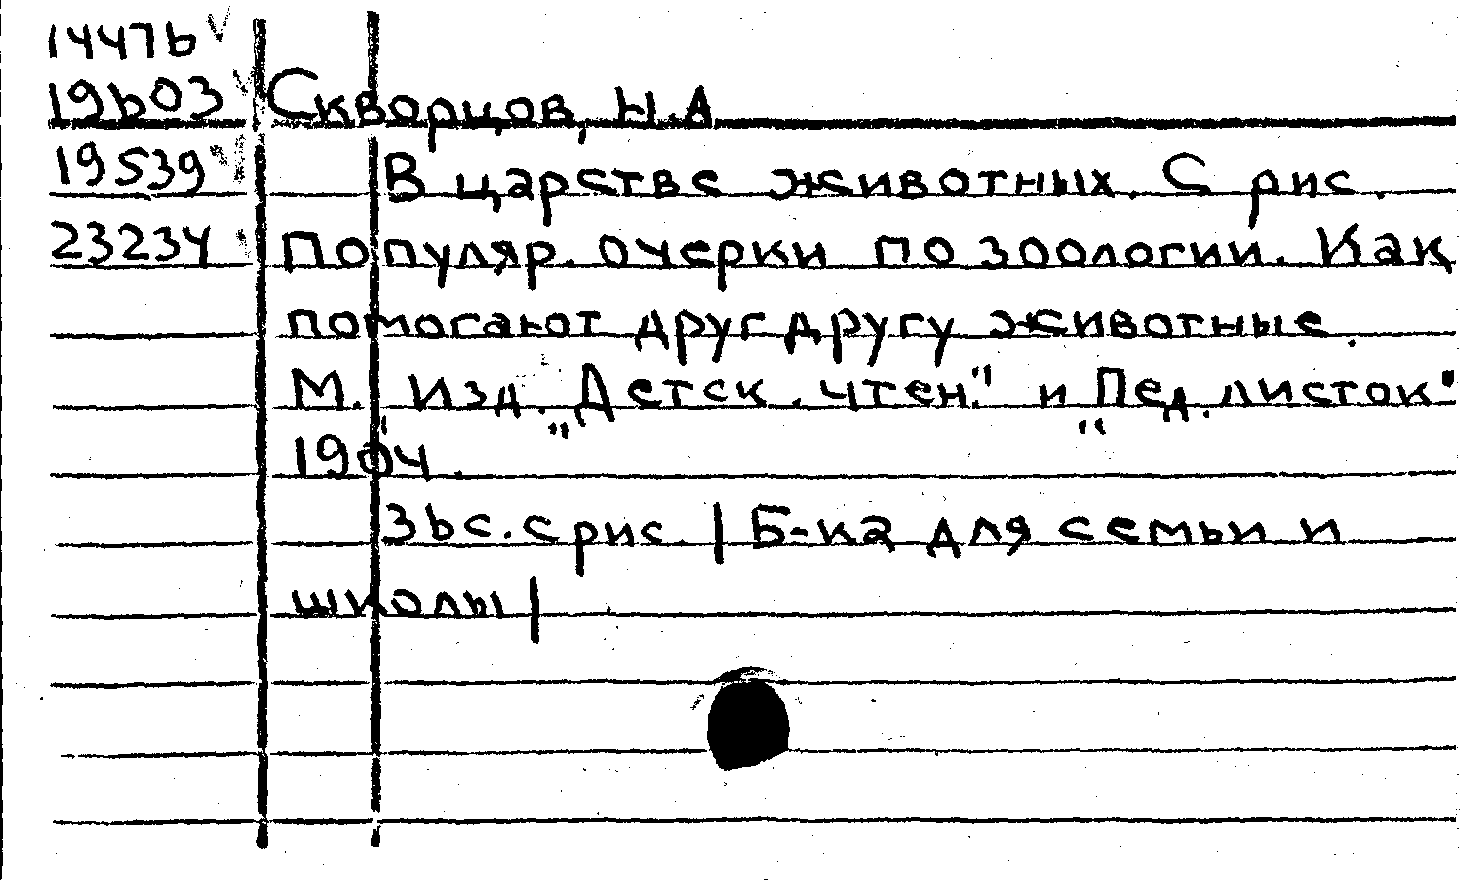 14476
19603 Скворцов, Н.А
19539 В царстве животных. С рис.
23234 Популяр. очерки по зоологии. Как
помогают друг другу животные.
М. Изд. „Детск. чтен." и „Пед. листок"
1904.
36с. с рис. | Б-ка для семьи и
школы |